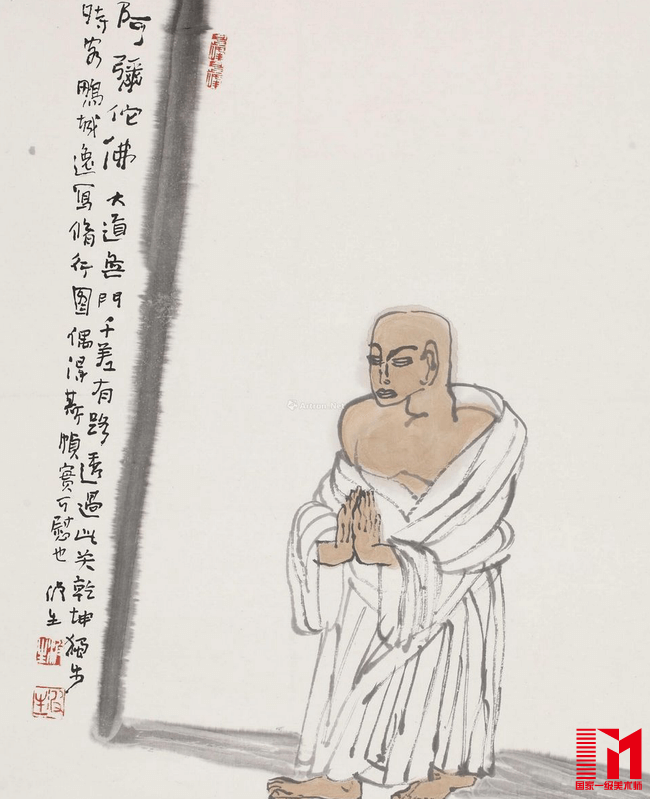 阿彌佗佛 大道無門千差有路透過此关乾坤獨步
時客鵬城逸寫脩行圖偶得慕幀實可慰也
Artron.Net
国家一级美术师